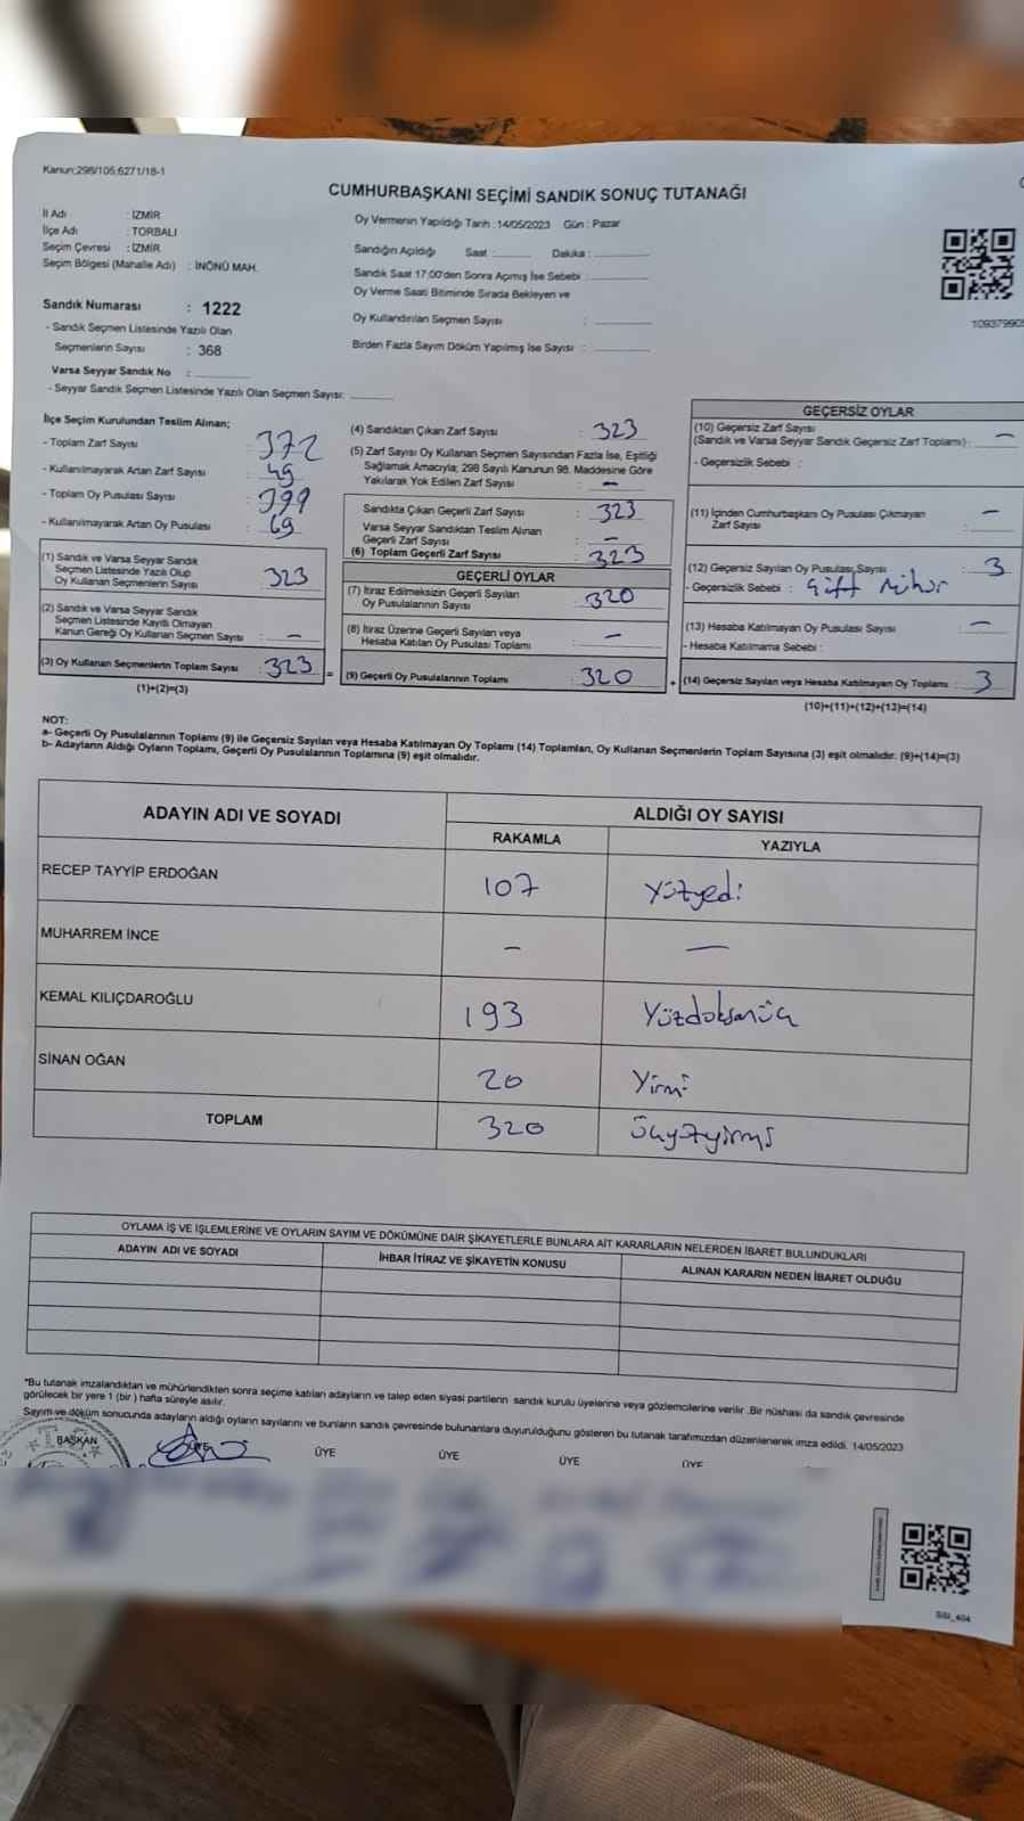 Kanun:298/105;6271/18-1
CUMHURBAŞKANI SEÇİMİ SANDIK SONUÇ TUTANAĞI
İl Adı : İZMİR
İlçe Adı : TORBALI
Seçim Çevresi : İZMİR
Seçim Bölgesi (Mahalle Adı) : İNÖNÜ MAH.
Oy Vermenin Yapıldığı Tarih :14/05/2023 Gün : Pazar
Sandığın Açıldığı Saat :........ Dakika :........
Sandık Saat 17:00'den Sonra Açılmış İse Sebebi :........
Oy Verme Saati Bitiminde Sırada Bekleyen ve
Oy Kullandırılan Seçmen Sayısı :........
Birden Fazla Sayım Döküm Yapılmış İse Sayısı :........
Sandık Numarası : 1222
- Sandık Seçmen Listesinde Yazılı Olan
Seçmenlerin Sayısı : 368
Varsa Seyyar Sandık No :........
- Seyyar Sandık Seçmen Listesinde Yazılı Olan Seçmen Sayısı: ........
İlçe Seçim Kurulundan Teslim Alınan;
- Toplam Zarf Sayısı : 372
- Kullanılmayarak Artan Zarf Sayısı : 49
- Toplam Oy Pusulası Sayısı : 399
- Kullanılmayarak Artan Oy Pusulası : 69
(1) Sandık ve Varsa Seyyar Sandık
Seçmen Listesinde Yazılı Olup
Oy Kullanan Seçmenlerin Sayısı : 323
(2) Sandık ve Varsa Seyyar Sandık
Seçmen Listesinde Kayıtlı Olmayan
Kanun Gereği Oy Kullanan Seçmen Sayısı : -
(3) Oy Kullanan Seçmenlerin Toplam Sayısı : 323 =
(1)+(2)=(3)
(4) Sandıktan Çıkan Zarf Sayısı : 323
(5) Zarf Sayısı Oy Kullanan Seçmen Sayısından Fazla İse, Eşitliği
Sağlamak Amacıyla; 298 Sayılı Kanunun 98. Maddesine Göre
Yakılarak Yok Edilen Zarf Sayısı : -
Sandıkta Çıkan Geçerli Zarf Sayısı : 323
Varsa Seyyar Sandıktan Teslim Alınan
Geçerli Zarf Sayısı : -
(6) Toplam Geçerli Zarf Sayısı : 323
GEÇERLİ OYLAR
(7) İtiraz Edilmeksizin Geçerli Sayılan
Oy Pusulalarının Sayısı : 320
(8) İtiraz Üzerine Geçerli Sayılan veya
Hesaba Katılan Oy Pusulası Toplamı : -
(9) Geçerli Oy Pusulalarının Toplamı : 320 +
GEÇERSİZ OYLAR
(10) Geçersiz Zarf Sayısı
(Sandık ve Varsa Seyyar Sandık Geçersiz Zarf Toplamı) : -
- Geçersizlik Sebebi :
(11) İçinden Cumhurbaşkanı Oy Pusulası Çıkmayan
Zarf Sayısı : -
(12) Geçersiz Sayılan Oy Pusulası Sayısı : 3
- Geçersizlik Sebebi : Çift Mühür
(13) Hesaba Katılmayan Oy Pusulası Sayısı : -
- Hesaba Katılmama Sebebi :
(14) Geçersiz Sayılan veya Hesaba Katılmayan Oy Toplamı : 3
(10)+(11)+(12)+(13)=(14)
NOT:
a- Geçerli Oy Pusulalarının Toplamı (9) ile Geçersiz Sayılan veya Hesaba Katılmayan Oy Toplamı (14) Toplamları, Oy Kullanan Seçmenlerin Toplam Sayısına (3) eşit olmalıdır. (9)+(14)=(3)
b- Adayların Aldığı Oyların Toplamı, Geçerli Oy Pusulalarının Toplamına (9) eşit olmalıdır.
ADAYIN ADI VE SOYADI
ALDIĞI OY SAYISI
RAKAMLA YAZIYLA
RECEP TAYYİP ERDOĞAN 107 Yüzyedi
MUHARREM İNCE - -
KEMAL KILIÇDAROĞLU 193 Yüzdoksanüç
SİNAN OĞAN 20 Yirmi
TOPLAM 320 Üçyüzyirmi
OYLAMA İŞ VE İŞLEMLERİNE VE OYLARIN SAYIM VE DÖKÜMÜNE DAİR ŞİKAYETLERLE BUNLARA AİT KARARLARIN NELERDEN İBARET BULUNDUKLARI
ADAYIN ADI VE SOYADI İHBAR İTİRAZ VE ŞİKAYETİN KONUSU ALINAN KARARIN NEDEN İBARET OLDUĞU
*Bu tutanak imzalandıktan ve mühürlendikten sonra seçime katılan adayların ve talep eden siyasi partilerin sandık kurulu üyelerine veya gözlemcilerine verilir. Bir nüshası da sandık çevresinde
görülecek bir yere 1 (bir) hafta süreyle asılır.
Sayım ve döküm sonucunda adayların aldığı oyların sayılarını ve bunların sandık çevresinde bulunanlara duyurulduğunu gösteren bu tutanak tarafımızdan düzenlenerek imza edildi. 14/05/2023
BAŞKAN ÜYE ÜYE ÜYE ÜYE